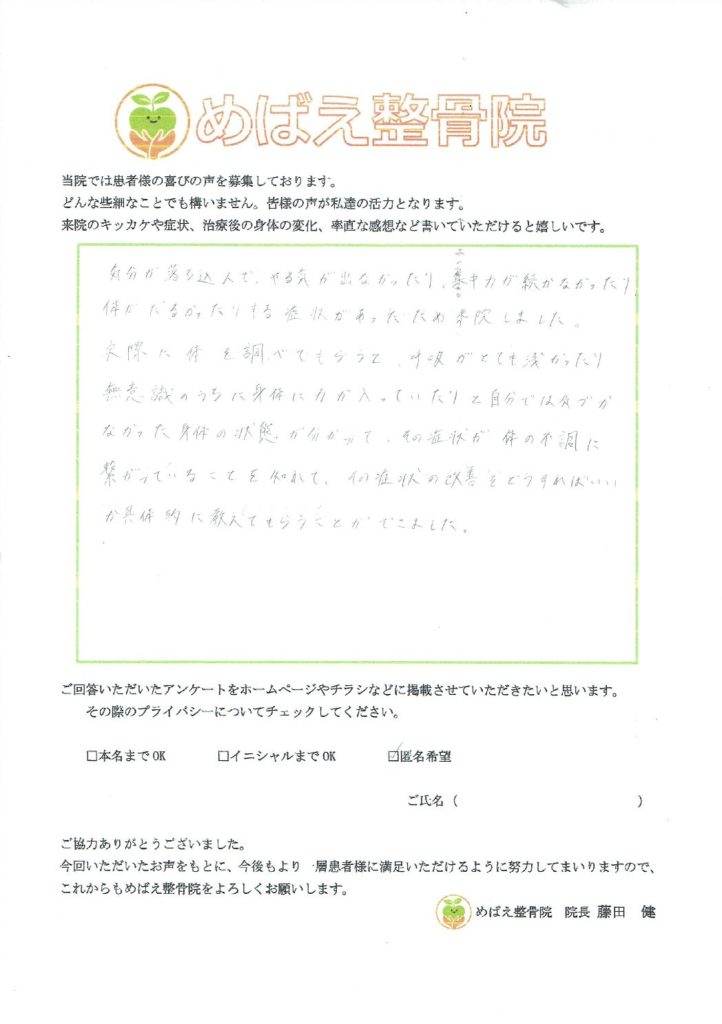 めばえ整骨院
当院では患者様の喜びの声を募集しております。
どんな些細なことでも構いません。皆様の声が私達の活力となります。
来院のキッカケや症状、治療後の身体の変化、率直な感想など書いていただけると嬉しいです。
気分が落ち込んで、やる気が出なかったり、集中力が続かなかったり、
体がだるかったりする症状があったため来院しました。
実際に体を調べてもらうと、呼吸がとても浅かったり
無意識のうちに身体に力が入っていたりと自分では気づか
なかった身体の状態が分かって、その症状が体の不調に
繋がっていることを知れて、その症状の改善をどうすればいい
か具体的に教えてもらうことができました。
ご回答いただいたアンケートをホームページやチラシなどに掲載させていただきたいと思います。
その際のプライバシーについてチェックしてください。
□本名までOK □イニシャルまでOK ☑匿名希望
ご氏名（ ）
ご協力ありがとうございました。
今回いただいたお声をもとに、今後もより一層患者様に満足いただけるように努力してまいりますので、
これからもめばえ整骨院をよろしくお願いします。
めばえ整骨院 院長 藤田 健